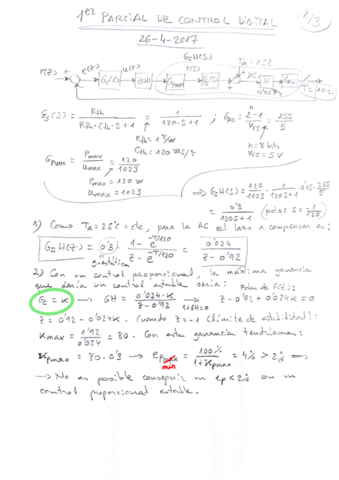 1er PARCIAL DE CONTROL DIGITAL 1/3
26-4-2017
GsH(s)
Ta=25º
r(z) e(z) u(z) ZOH
T=10s
Gs(s) = Rth / (Rth·Cth·s+1) = 1 / (120·s+1) ; = (2^n-1) / VFS = 255 / 5
Rth=1 ºC/W
Cth=120 Ws/ºC
n=8 bits
VFS=5V
Gpwm = Pmax / umax = 120 / 1023
Pmax = 120 W
umax = 1023
⇒ GsH(s) = 120/1023 · 1/(120s+1) · · 255/5
0'3 / (120s+1) (polo: s = )
1) Como Ta=25ºC=cte, para la AC el lazo a compensar es:
GsH(z) = 0'3 · (1-e^(-T/120)) / (z-e^(-T/120)) = 0'024 / (z-0'92)
g. estática
2) Con un control proporcional, la máxima ganancia
que daría un control estable sería: Polos de F(z):
Gc = K → GH = 0'024·K / (z-0'92) → 1+GH=0 z-0'92+0'024K=0
z=0'92-0'024K. Cuando z=-1 (límite de estabilidad):
Kmax = 1'92 / 0'024 = 80. Con esta ganancia tendríamos:
Kpmax = 80·0'3 → ep max min = 100% / (1+Kpmax) = 4% > 2% ⇒
→ No es posible conseguir un ep<2% con un
control proporcional estable.